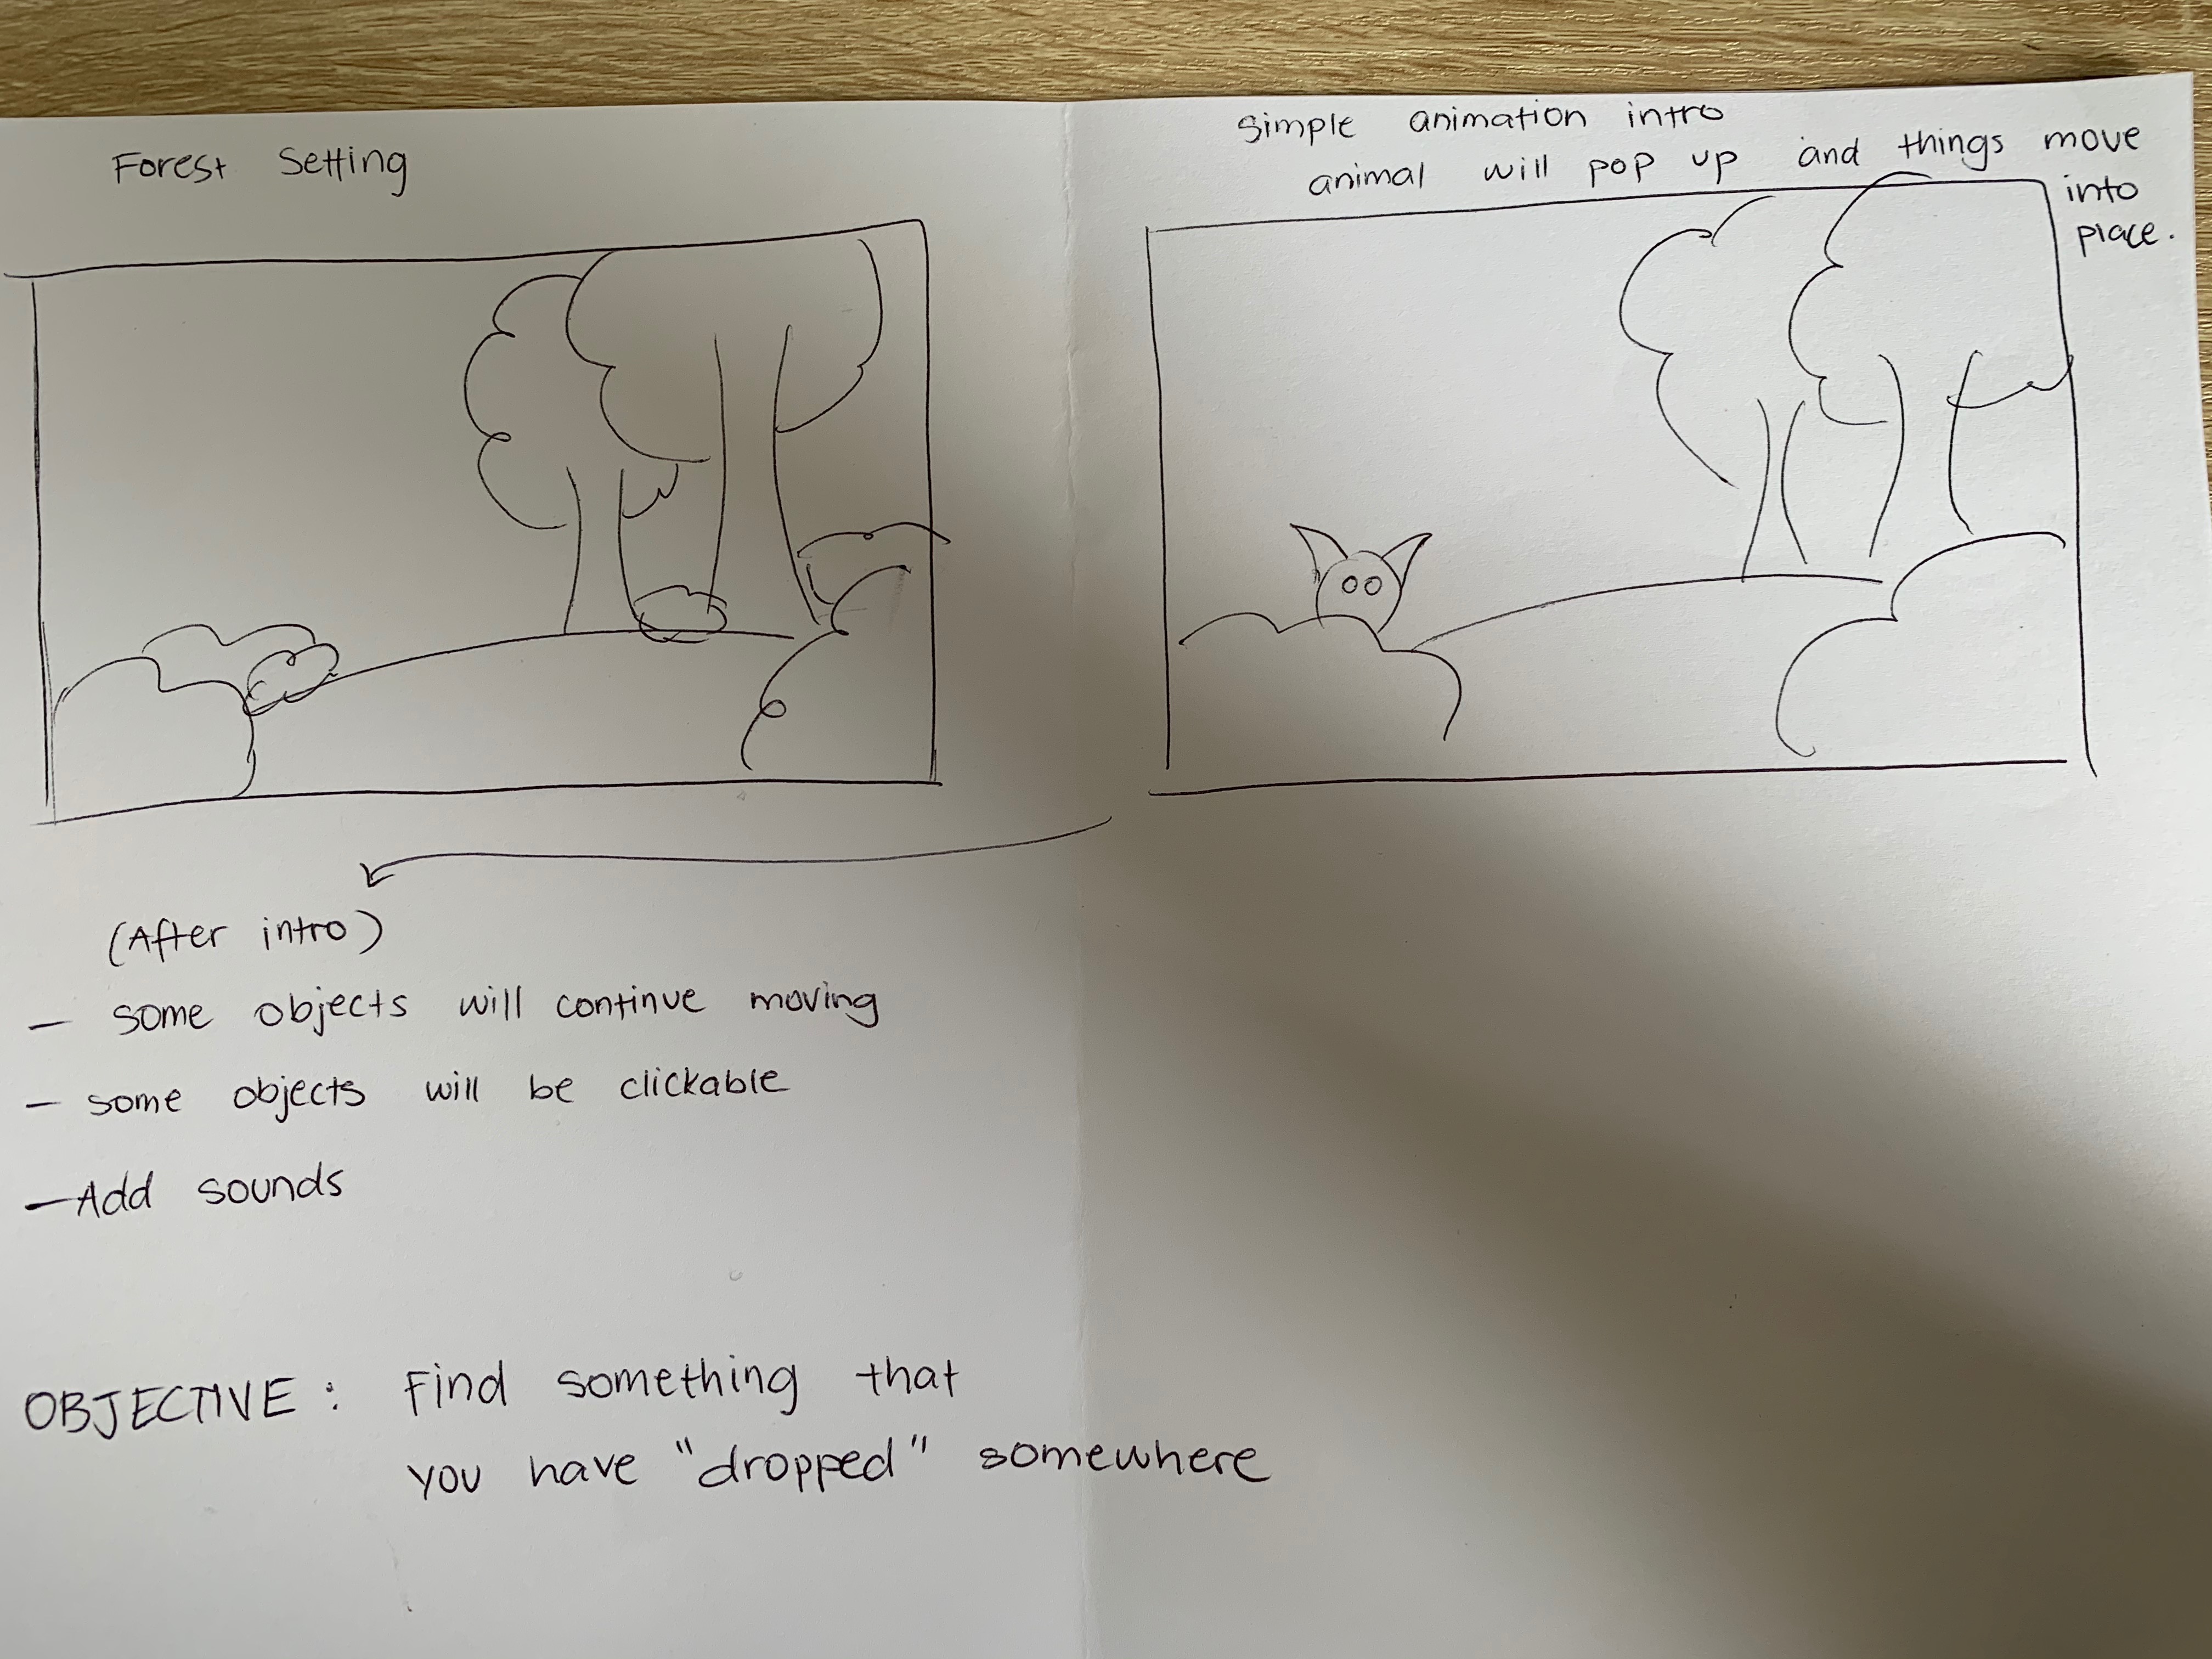 Forest Setting
Simple animation intro
animal will pop up and things move
into
place.
(After intro)
– some objects will continue moving
– some objects will be clickable
– Add sounds
OBJECTIVE : Find something that
you have "dropped" somewhere